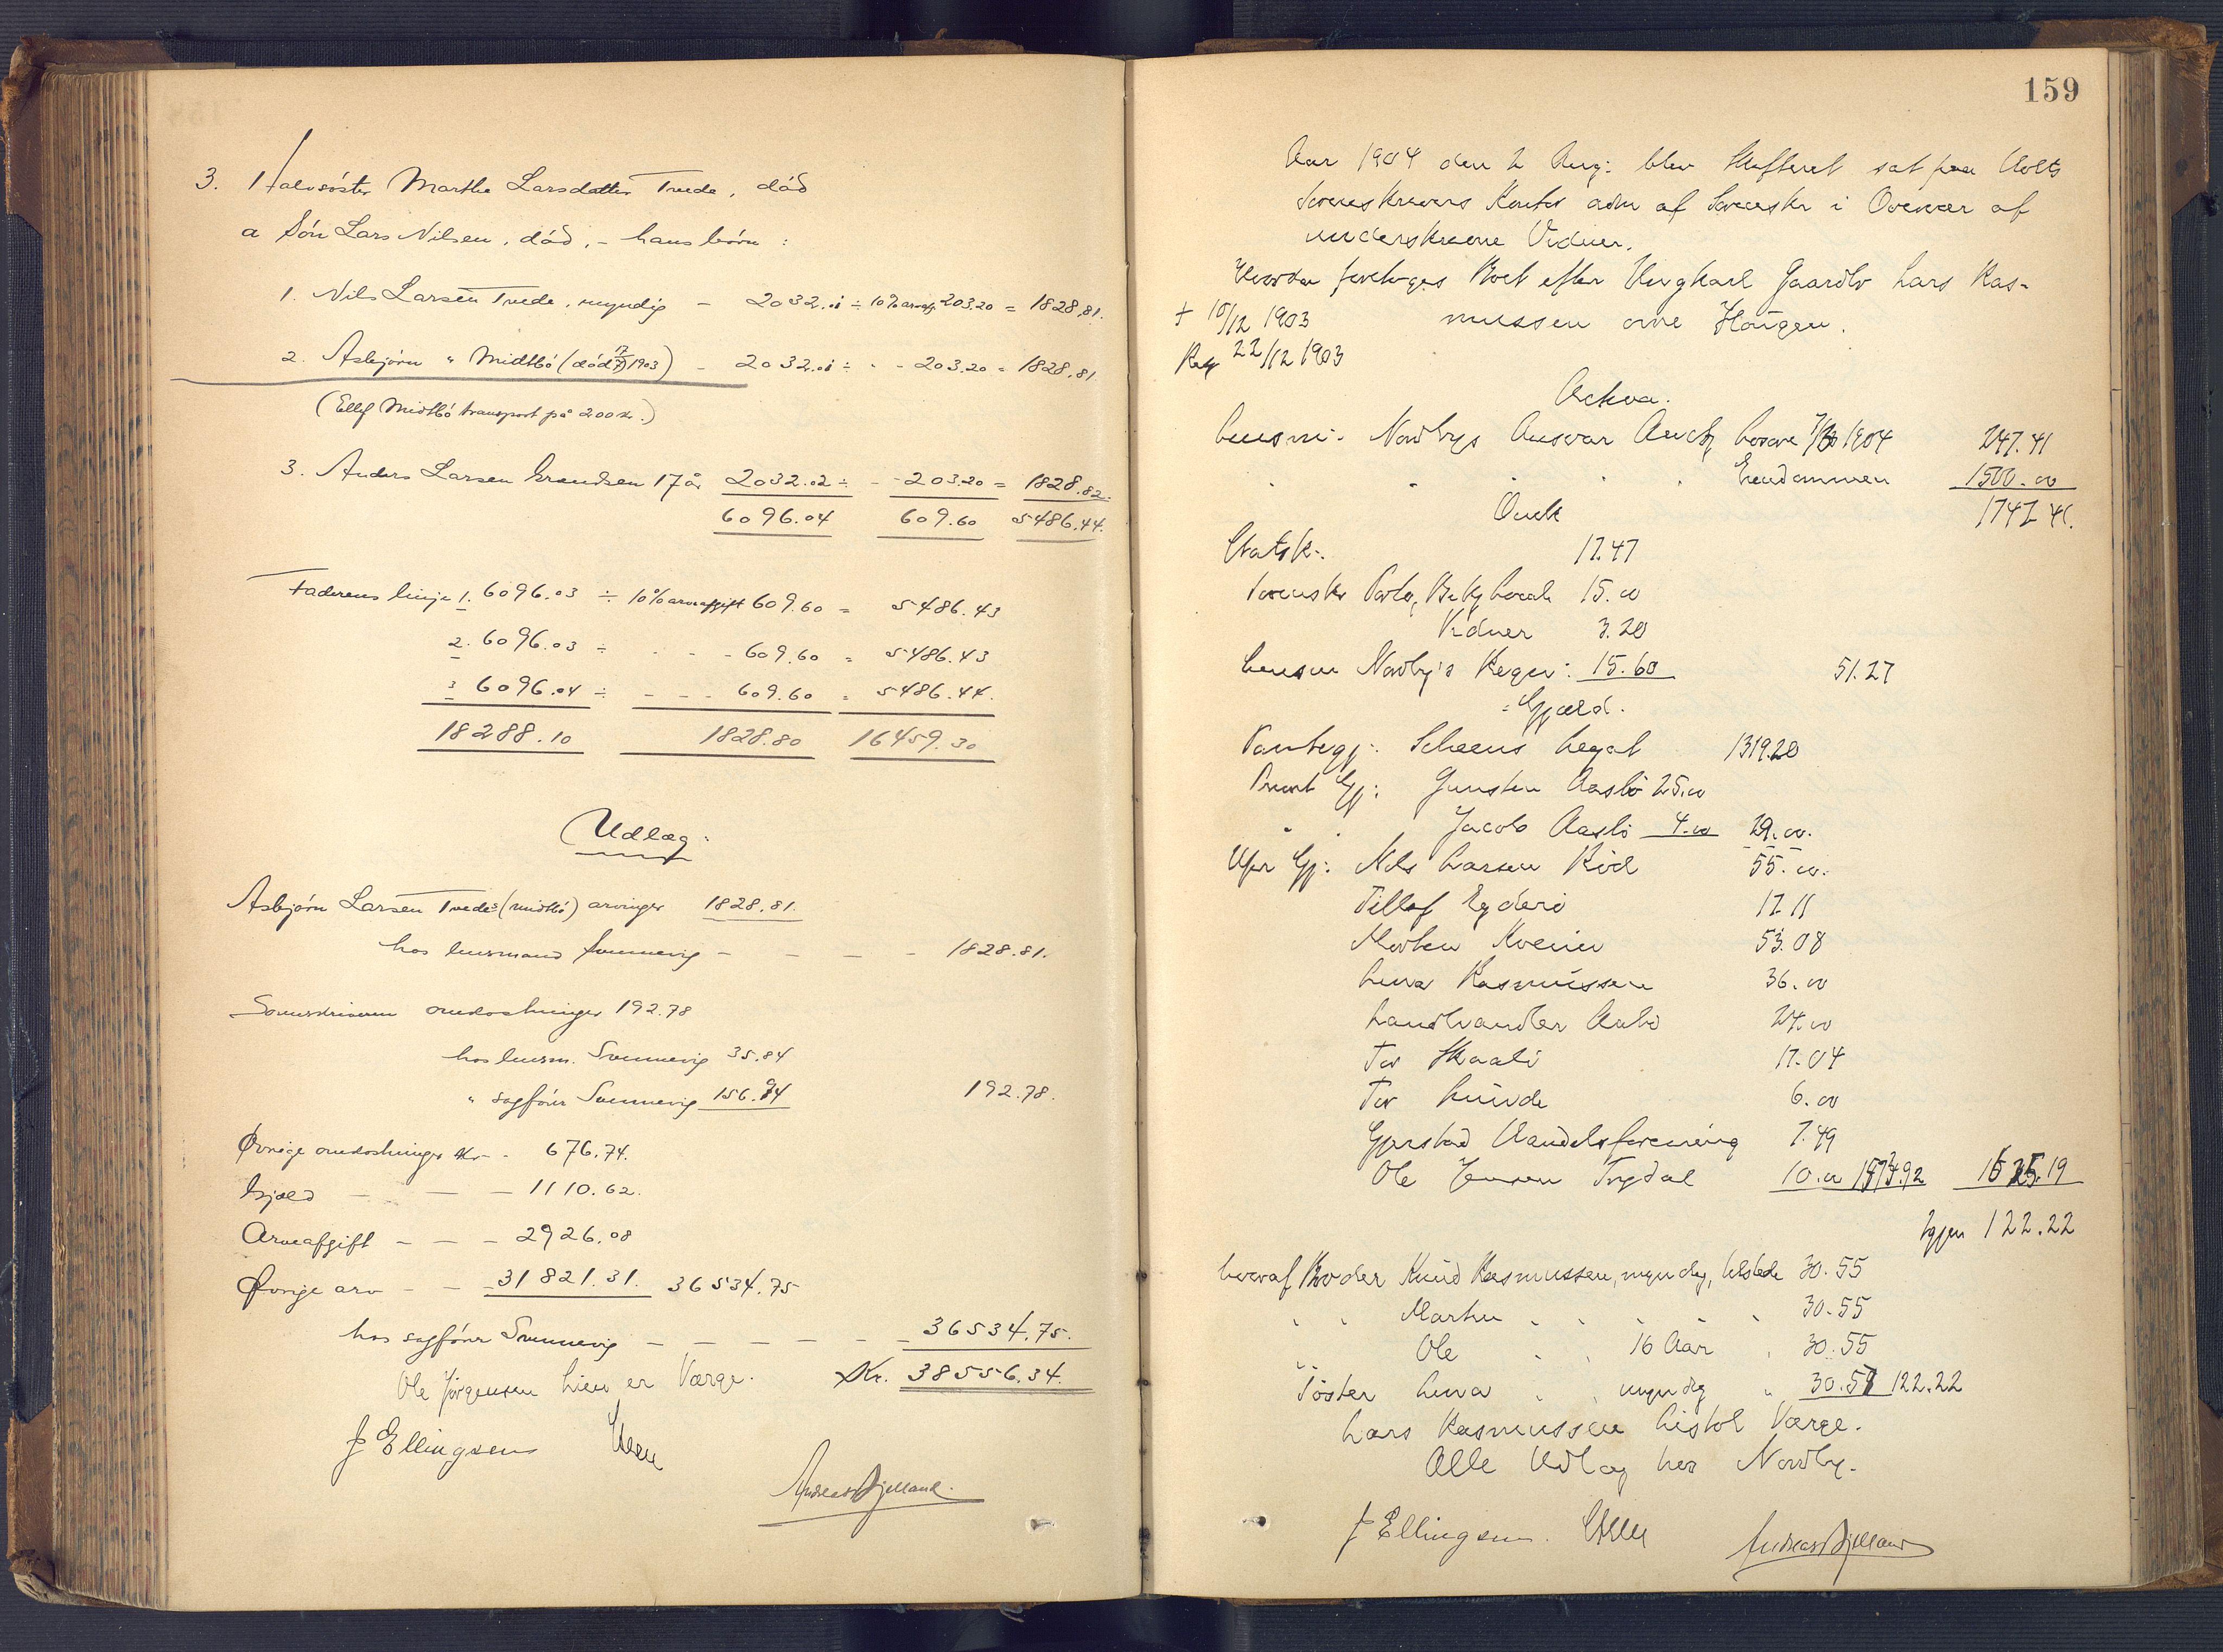 3. Halvsöster Marthe Larsdatter Tvede, död
a Sön Lars Nilsen, död, - hans börn:
1. Nils Larsen Tvede, myndig - 2032.01 ÷ 10% arveafg. 203.20 = 1828,81.
2. Asbjörn " Midtbö (död 17/7 1903) - 2032.01 ÷ - - 203.20 = 1828,81
(Ellef Midtbö transport på 200 kr.)
3. Anders Larsen Grændsen 17 år 2032.02 ÷ - - 203.20 = 1828.82.
6096.04 609.60 5486.44.
Faderens linje 1. 6096.03 ÷ 10% arveafgift 609.60 = 5486.43
2. 6096.03 ÷ - - - 609.60 = 5486.43
3 6096.04 ÷ - - - 609.60 = 5486.44.
18288.10 1828.80 16459.30
Udlæg:
Asbjörn Larsen Tvedes (Midtbö) arvinger 1828.81.
hos lensmand Sunnevig - - - - 1828.81.
omkostninger 192.78
hos lensm. Sunnevig 35.84
" sagförer Sunnevig 156.94 192.78.
Øvrige omkostninger Kr - - 676.74.
Gjæld - - - 1110.62.
Arveafgift - - - 2926.08
Øvrige arv - - 31821.31. 36534.75
hos sagförer Sunnevig - - - - - - 36534.75.
Kr. 38556.34.
Ole Jörgensen Lien er Værge.
J Ellingsen
Andreas Bjelland.
159
Aar 1904 den 2 Aug: blev Skifteret sat paa Holts
Sorenskrivers Kontor adm af Sorenskr i Overvær af
underskrevne Vidner.
Hvorda foretoges Boet efter Ungkarl Gaardbr Lars Ras-
mussen Haugen.
+ 10/12 1903
Reg 22/12 1903
Activa.
Lensm: Nordbys Ansvar Auctg Losore 1904 247.41
" " " " Eiendommen 1500.00
1747.41.
Omk
Statsk:. 17.47
Sorenskr Porto, Bekg Locale 15.00
Vidner 3.20
Lensm Nordby's Regn: 15.60 51.27
Gjæld.
Pantegj: Scheens Legat 1319.20
Privt Gj: Gunsten Aasbö 25.00
" " Jacob Aasbö 4.00 29.00.
Upr Gj: Nils Larsen 55.00.
Tellef Egderö 17.11
Morten Kveim 53.08
Lena Rasmussen 36.00
Landhandler Aabö 24.00
Tor Skaali 17.04
Tor 6.00
Gjerstad Handelsforening 7.49
Ole Jensen Trydal 10.00 1573.92 1625.19
Igjen 122.22
heraf Broder Knud Rasmussen, myndig, tilstede 30.55
" " Marthin " " " " 30.55
" " Ole " " 16 Aar " 30.55
Söster Lena " " myndig " 30.57 122.22
Lars Rasmussen Værge.
Alle Udlæg hos Nordby.
J Ellingsen.
Andreas Bjelland